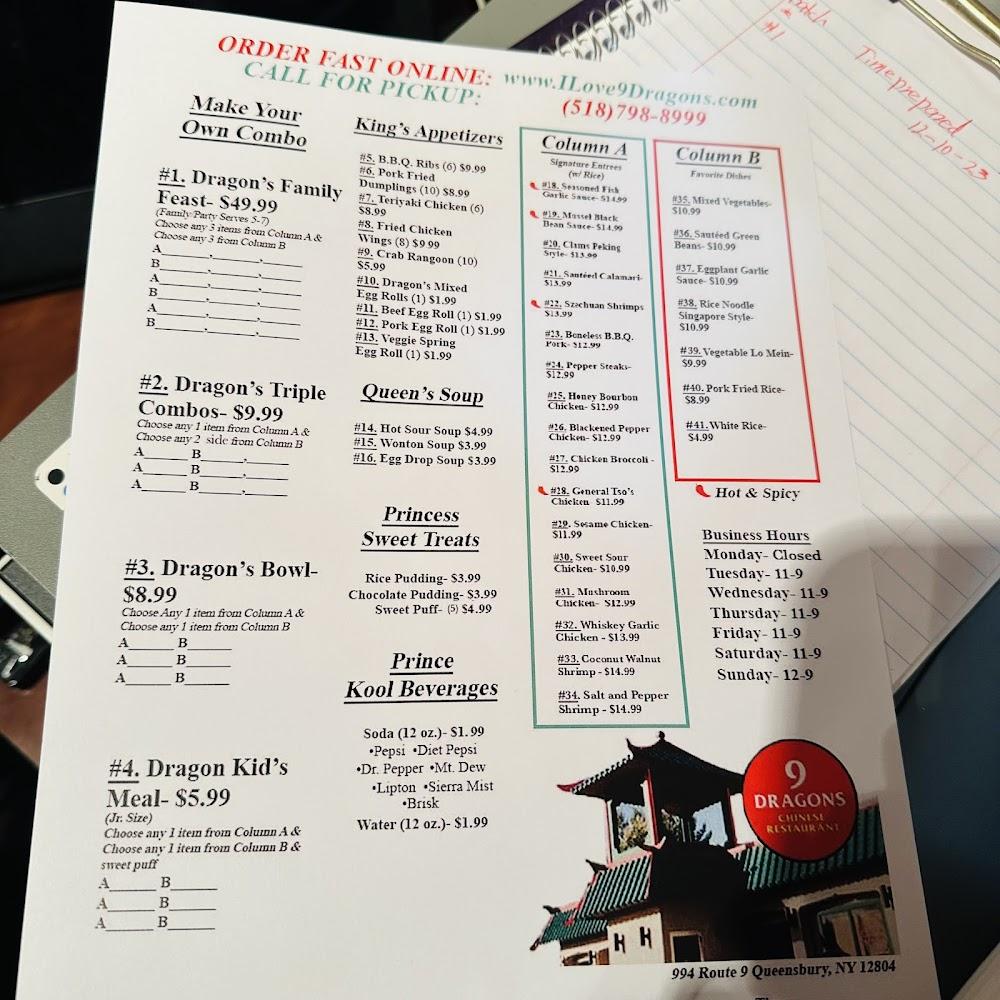 ORDER FAST ONLINE: www.ILove9Dragons.com
CALL FOR PICKUP: (518)798-8999
Make Your
Own Combo
#1. Dragon's Family
Feast- $49.99
(Family/Party Serves 5-7)
Choose any 3 items from Column A &
Choose any 3 from Column B
A______,______,______
B______,______,______
A______,______,______
B______,______,______
A______,______,______
B______,______,______
#2. Dragon's Triple
Combos- $9.99
Choose any 1 item from Column A &
Choose any 2 side from Column B
A______ B______,______
A______ B______,______
A______ B______,______
#3. Dragon's Bowl-
$8.99
Choose Any 1 item from Column A &
Choose any 1 item from Column B
A______ B______
A______ B______
A______ B______
#4. Dragon Kid's
Meal- $5.99
(Jr. Size)
Choose any 1 item from Column A &
Choose any 1 item from Column B &
sweet puff
A______ B______
A______ B______
A______ B______
King's Appetizers
#5. B.B.Q. Ribs (6) $9.99
#6. Pork Fried
Dumplings (10) $8.99
#7. Teriyaki Chicken (6)
$8.99
#8. Fried Chicken
Wings (8) $9.99
#9. Crab Rangoon (10)
$5.99
#10. Dragon's Mixed
Egg Rolls (1) $1.99
#11. Beef Egg Roll (1) $1.99
#12. Pork Egg Roll (1) $1.99
#13. Veggie Spring
Egg Roll (1) $1.99
Queen's Soup
#14. Hot Sour Soup $4.99
#15. Wonton Soup $3.99
#16. Egg Drop Soup $3.99
Princess
Sweet Treats
Rice Pudding- $3.99
Chocolate Pudding- $3.99
Sweet Puff- (5) $4.99
Prince
Kool Beverages
Soda (12 oz.)- $1.99
•Pepsi •Diet Pepsi
•Dr. Pepper •Mt. Dew
•Lipton •Sierra Mist
•Brisk
Water (12 oz.)- $1.99
Column A
Signature Entrees
(w/ Rice)
#18. Seasoned Fish
Garlic Sauce- $14.99
#19. Mussel Black
Bean Sauce- $14.99
#20. Clams Peking
Style- $13.99
#21. Sautéed Calamari-
$13.99
#22. Szechuan Shrimps
$13.99
#23. Boneless B.B.Q.
Pork- $12.99
#24. Pepper Steaks-
$12.99
#25. Honey Bourbon
Chicken- $12.99
#26. Blackened Pepper
Chicken- $12.99
#27. Chicken Broccoli -
$12.99
#28. General Tso's
Chicken- $11.99
#29. Sesame Chicken-
$11.99
#30. Sweet Sour
Chicken- $10.99
#31. Mushroom
Chicken- $12.99
#32. Whiskey Garlic
Chicken - $13.99
#33. Coconut Walnut
Shrimp - $14.99
#34. Salt and Pepper
Shrimp - $14.99
Column B
Favorite Dishes
#35. Mixed Vegetables-
$10.99
#36. Sautéed Green
Beans- $10.99
#37. Eggplant Garlic
Sauce- $10.99
#38. Rice Noodle
Singapore Style-
$10.99
#39. Vegetable Lo Mein-
$9.99
#40. Pork Fried Rice-
$8.99
#41. White Rice-
$4.99
Hot & Spicy
Business Hours
Monday- Closed
Tuesday- 11-9
Wednesday- 11-9
Thursday- 11-9
Friday- 11-9
Saturday- 11-9
Sunday- 12-9
9
DRAGONS
CHINESE
RESTAURANT
994 Route 9 Queensbury, NY 12804
#1
Time prepared
12-10-23